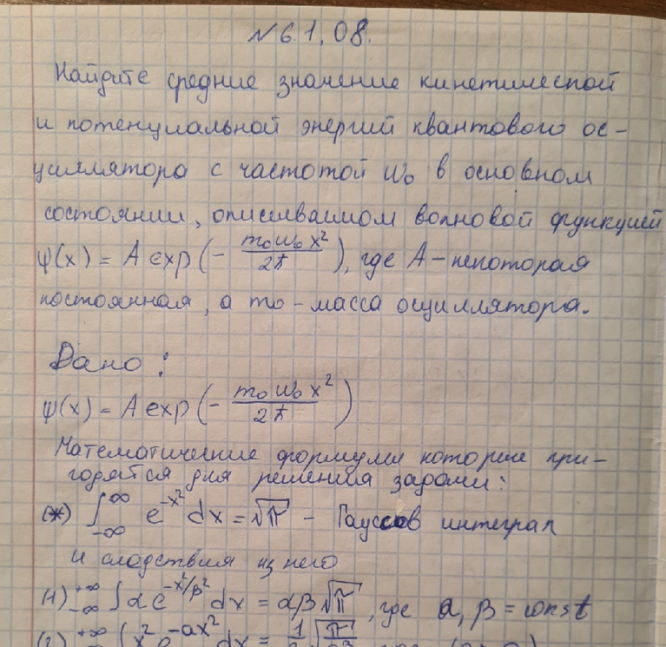 №6.1.08.
Найдите средние значение кинетической
и потенциальной энергий квантового ос-
циллятора с частотой ω₀ в основном
состоянии, описываемом волновой функцией
ψ(x) = A exp(- m₀ω₀x²/2ħ), где A - некоторая
постоянная, а m₀ - масса осциллятора.
Дано:
ψ(x) = A exp(- m₀ω₀x²/2ħ)
Математические формулы которые при-
годятся для решения задачи:
(*) ∫_{-∞}^{∞} e^{-x²} dx = √π - Гауссов интеграл
и следствия из него
(1) _{-∞}^{+∞}∫ α e^{-x²/β²} dx = αβ√π, где α, β = const